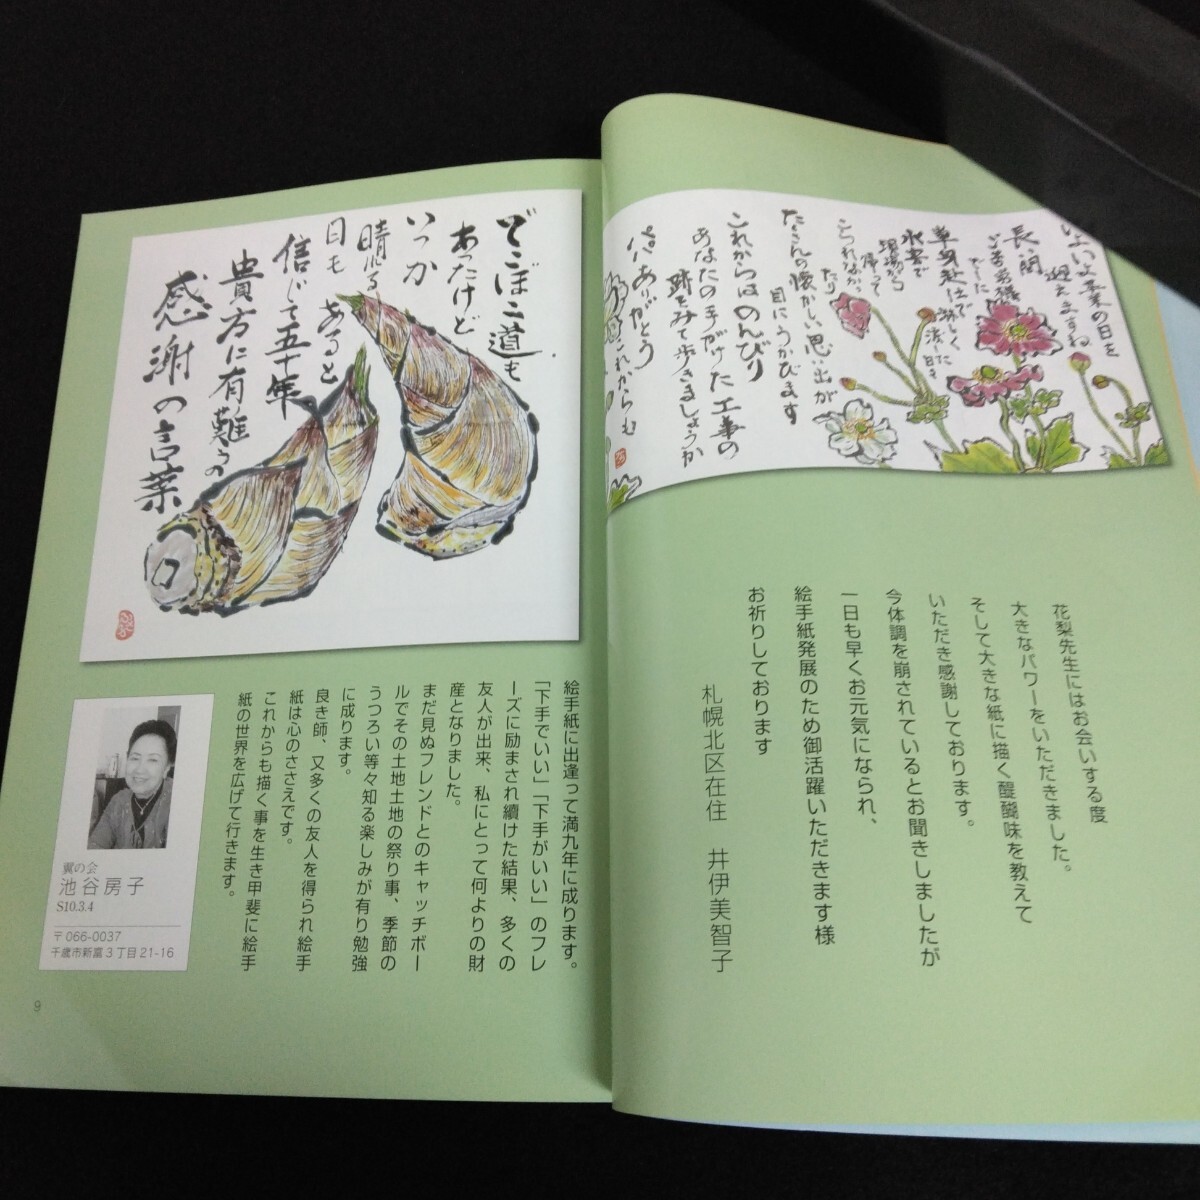 いよいよ卒業の日を
迎えますね
長い間
ご苦労様
でした
単身赴任で淋しく
氷室で
現場から
帰って
たり
たくさんの懐かしい思い出が
目にうかびます
これからはのんびり
あなたの手がけた工事の
跡をみて歩きましょうか
パパありがとう
これからも
花梨先生にはお会いする度
大きなパワーをいただきました。
そして大きな紙に描く醍醐味を教えて
いただき感謝しております。
今体調を崩されているとお聞きしましたが
一日も早くお元気になられ、
絵手紙発展のため御活躍いただきます様
お祈りしております
札幌北区在住 井伊美智子
でこぼこ道も
あったけど
いつか
晴れる
日も
あると
信じて五十年
貴方に有難うの
感謝の言葉
絵手紙に出逢って満九年に成ります。
「下手でいい」「下手がいい」のフレ
ーズに励まされ續けた結果、多くの
友人が出来、私にとって何よりの財
産となりました。
まだ見ぬフレンドとのキャッチボー
ルでその土地土地の祭り事、季節の
うつろい等々知る楽しみが有り勉強
に成ります。
良き師、又多くの友人を得られ絵手
紙は心のささえです。
これからも描く事を生き甲斐に絵手
紙の世界を広げて行きます。
翼の会
池谷房子
S10.3.4
〒066-0037
千歳市新富3丁目21-16
9